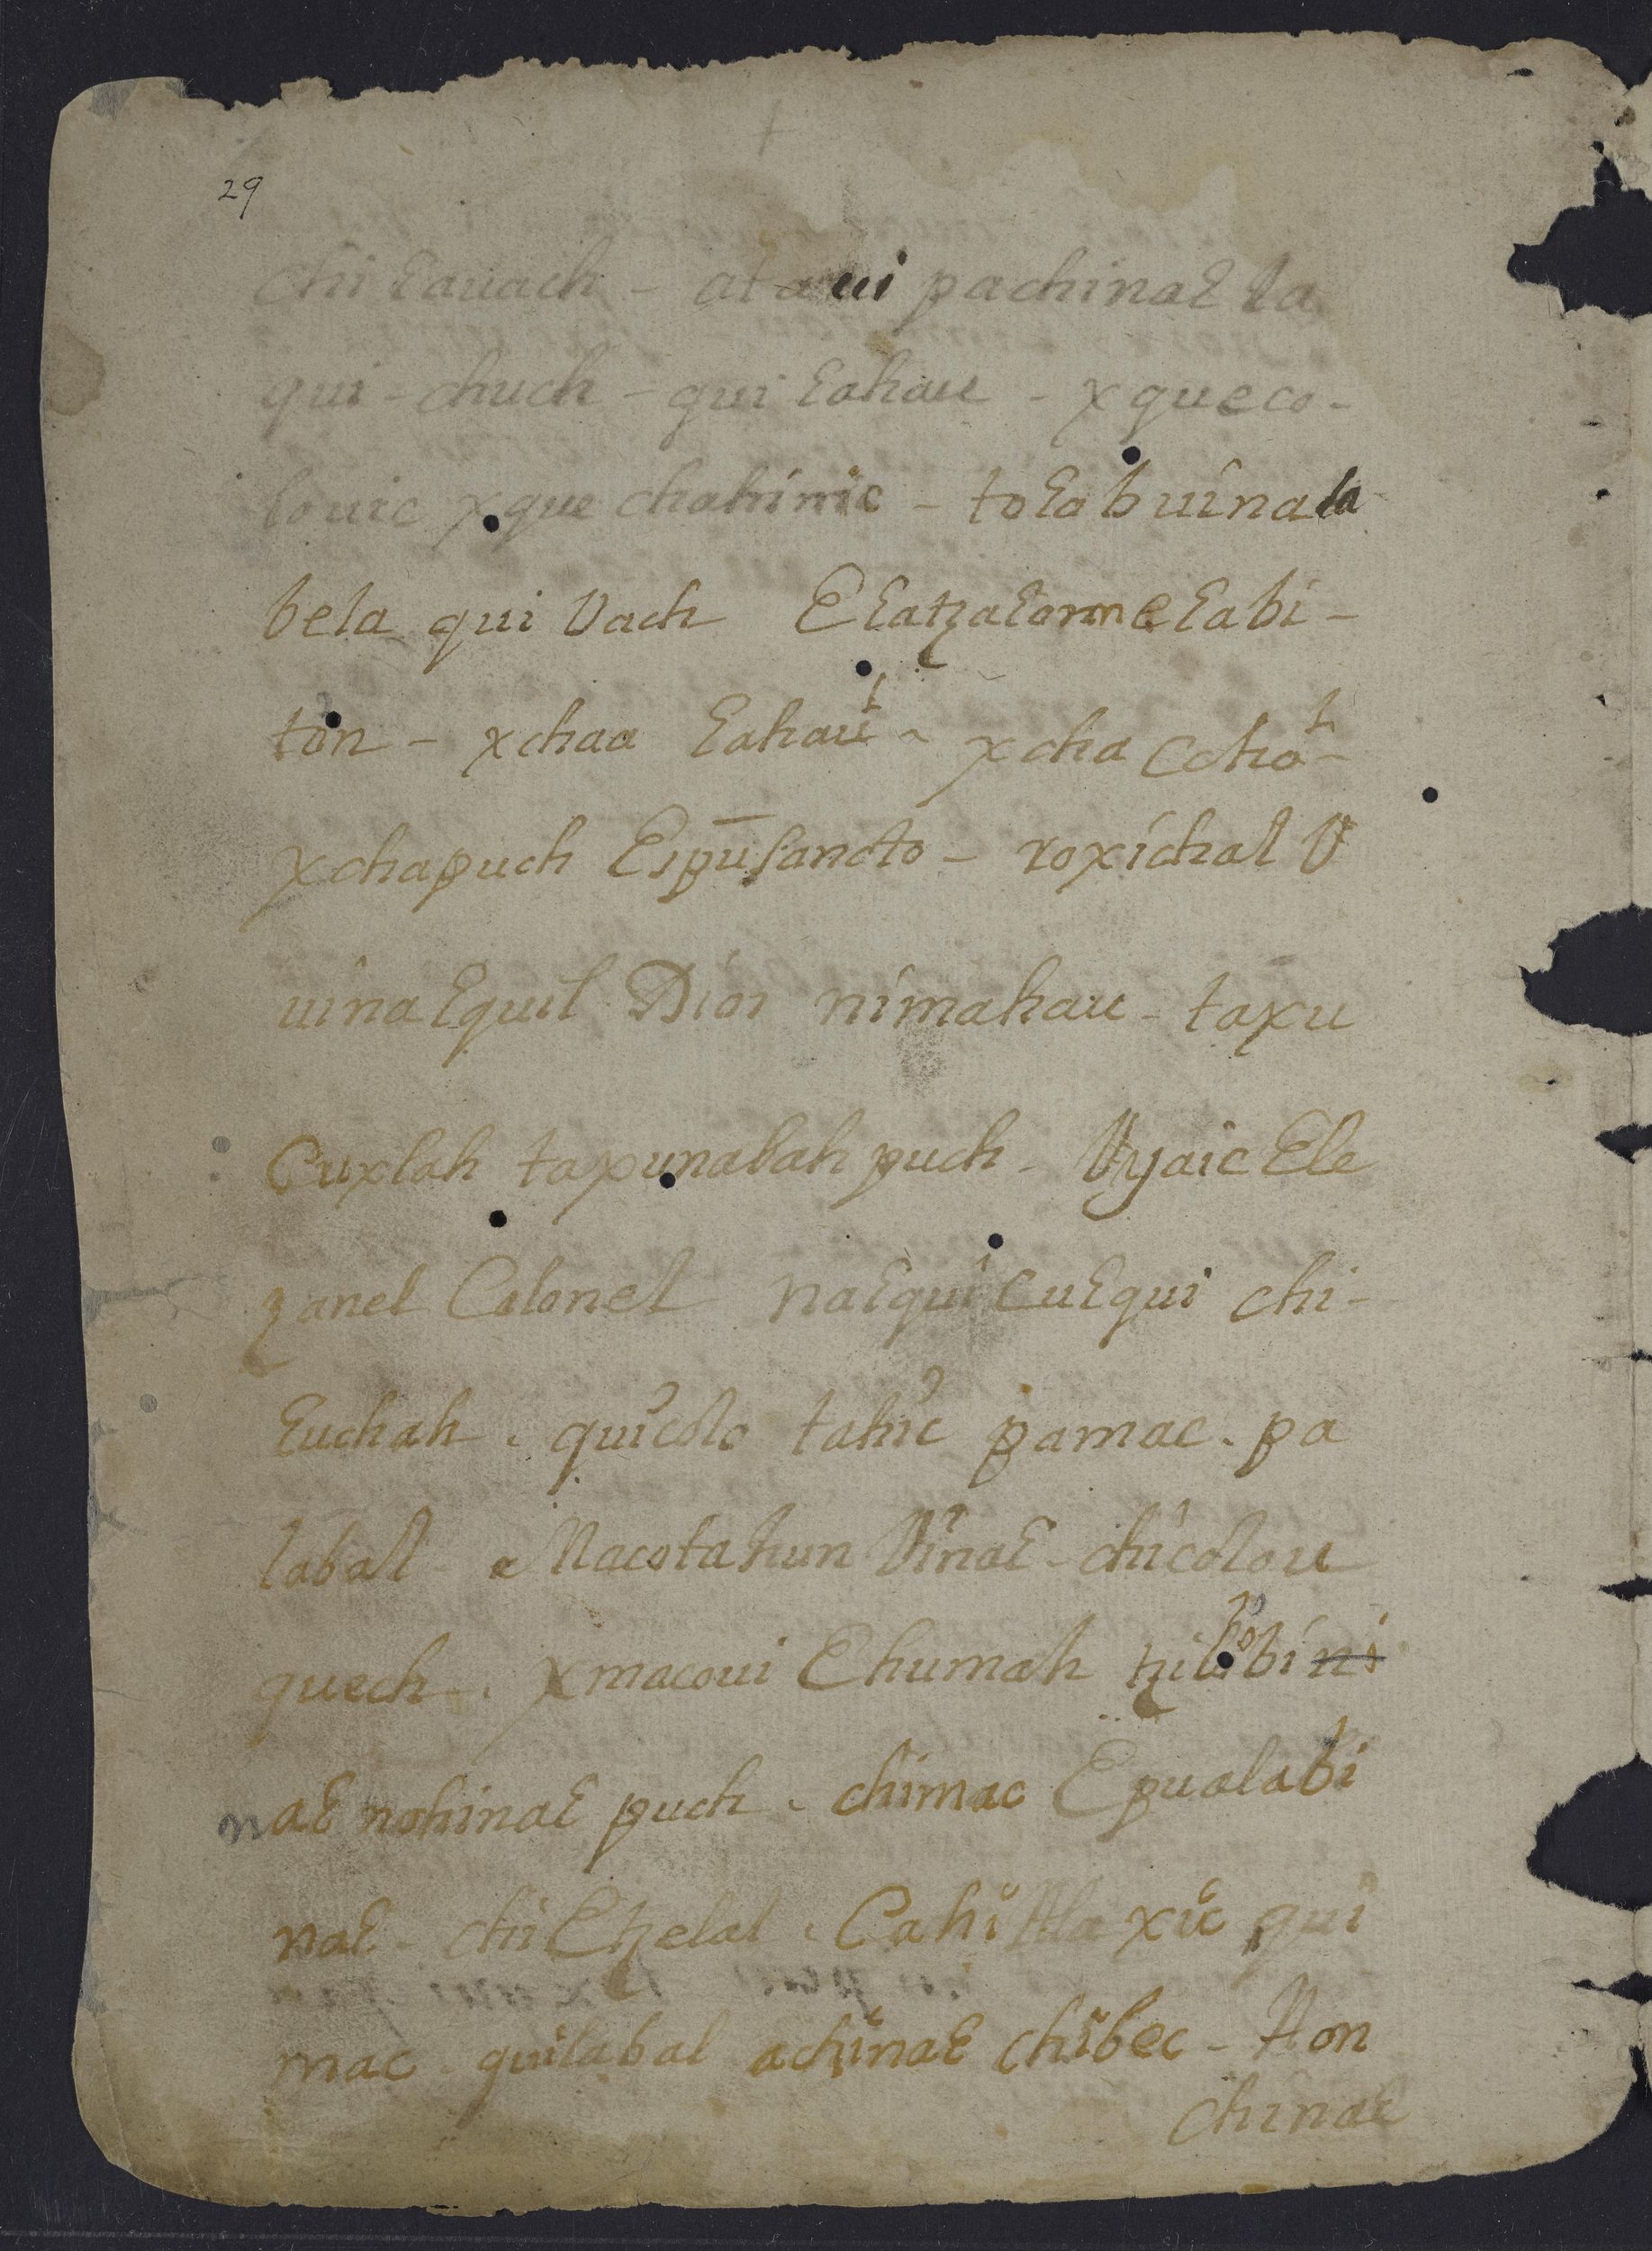 29
chi ꜫauach - at a ui pachinaꜫ ꜫa
qui - chuch - qui ꜫahau - xqueco-
louic xque chahinic - toꜫobuinaꜫa
bela qui Vach Eꜫatzaꜫam eꜫabi -
ton - xchaa ꜫahauˡ - xcha Cchaˡ -
xchapuch Espu̅sancto - roxichal V
uinaꜫquil Dios nimahau - taxu
Cuxlah taxunabah puch - Vyaic Ele
zanel Colonel naꜫqui cuꜫqui chi -
ꜫuchah . quicolo tahic pamac . pa
labal a Macotahun Vinaꜫ - chicolou
quech . xmacoui Ehumah tzilobi ni
naꜫ nohinaꜫ puch . chimac Epualabi
naꜫ - chi Etzelal . Cahi xic qui
mac . quilabal achinaꜫ chibec - Mon
chinaꜫ